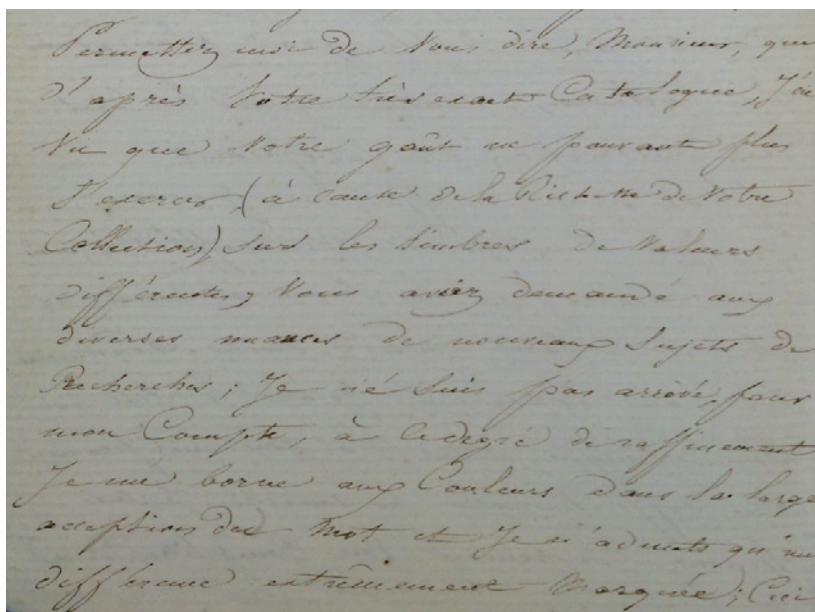 Permettez moi de Vous dire, Monsieur, que
d'après Votre très exact Catalogue, J'ai
Vu que Votre goût ne pouvant plus
s'exercer (à cause de la Richesse de Votre
Collection) sur les timbres de Valeurs
différentes, Vous aviez demandé aux
diverses nuances de nouveaux Sujets de
Recherches; Je n'é suis pas arrivé, pour
mon Compte, à ce degré de raffinement
Je me borne aux Couleurs dans la large
acception du mot et Je n'admets qu'une
différence extrêmement Marquée; Ceci